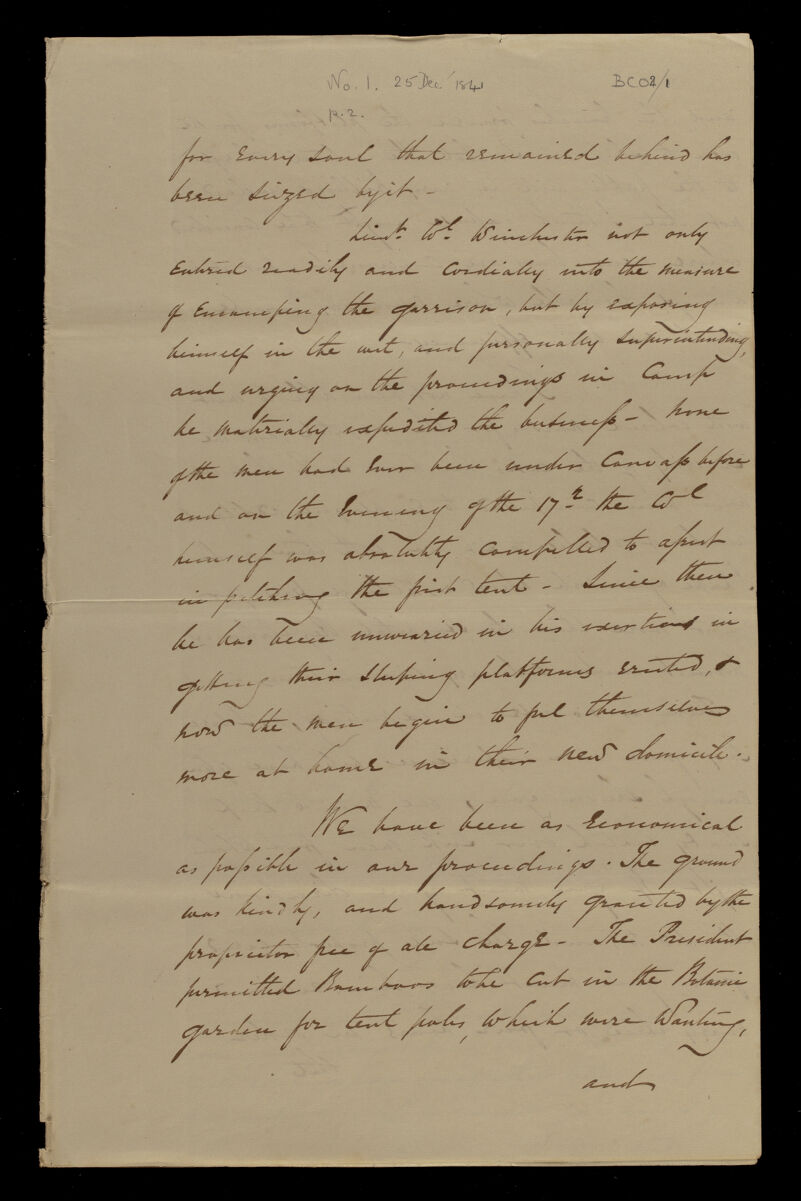 No. 1. 25 Dec' 1841
BC02/1
p. 2.
for Every soul that remained behind has
been siezed by it -
Lieut. Col. Winchester not only
Entered readily and Cordially into the measure
of Encamping the garrison, but by exposing
himself in the wet, and personally Superintending,
and urging on the proceedings in Camp
he materially expedited the business - None
of the men had Ever been under Canvass before
and on the Evening of the 17th the Col
himself was absolutely compelled to assist
in pitching the first tent - Since then
he has been unwearied in his exertions in
getting their sleeping platforms erected, &
now the men begin to feel themselves
more at home in their new domicile.
We have been as Economical
as possible in our proceedings. The ground
was kindly, and handsomely granted by the
proprietor free of all charge - The President
permitted Bamboos to be Cut in the Botanic
garden for tent poles, which were Wanting,
and